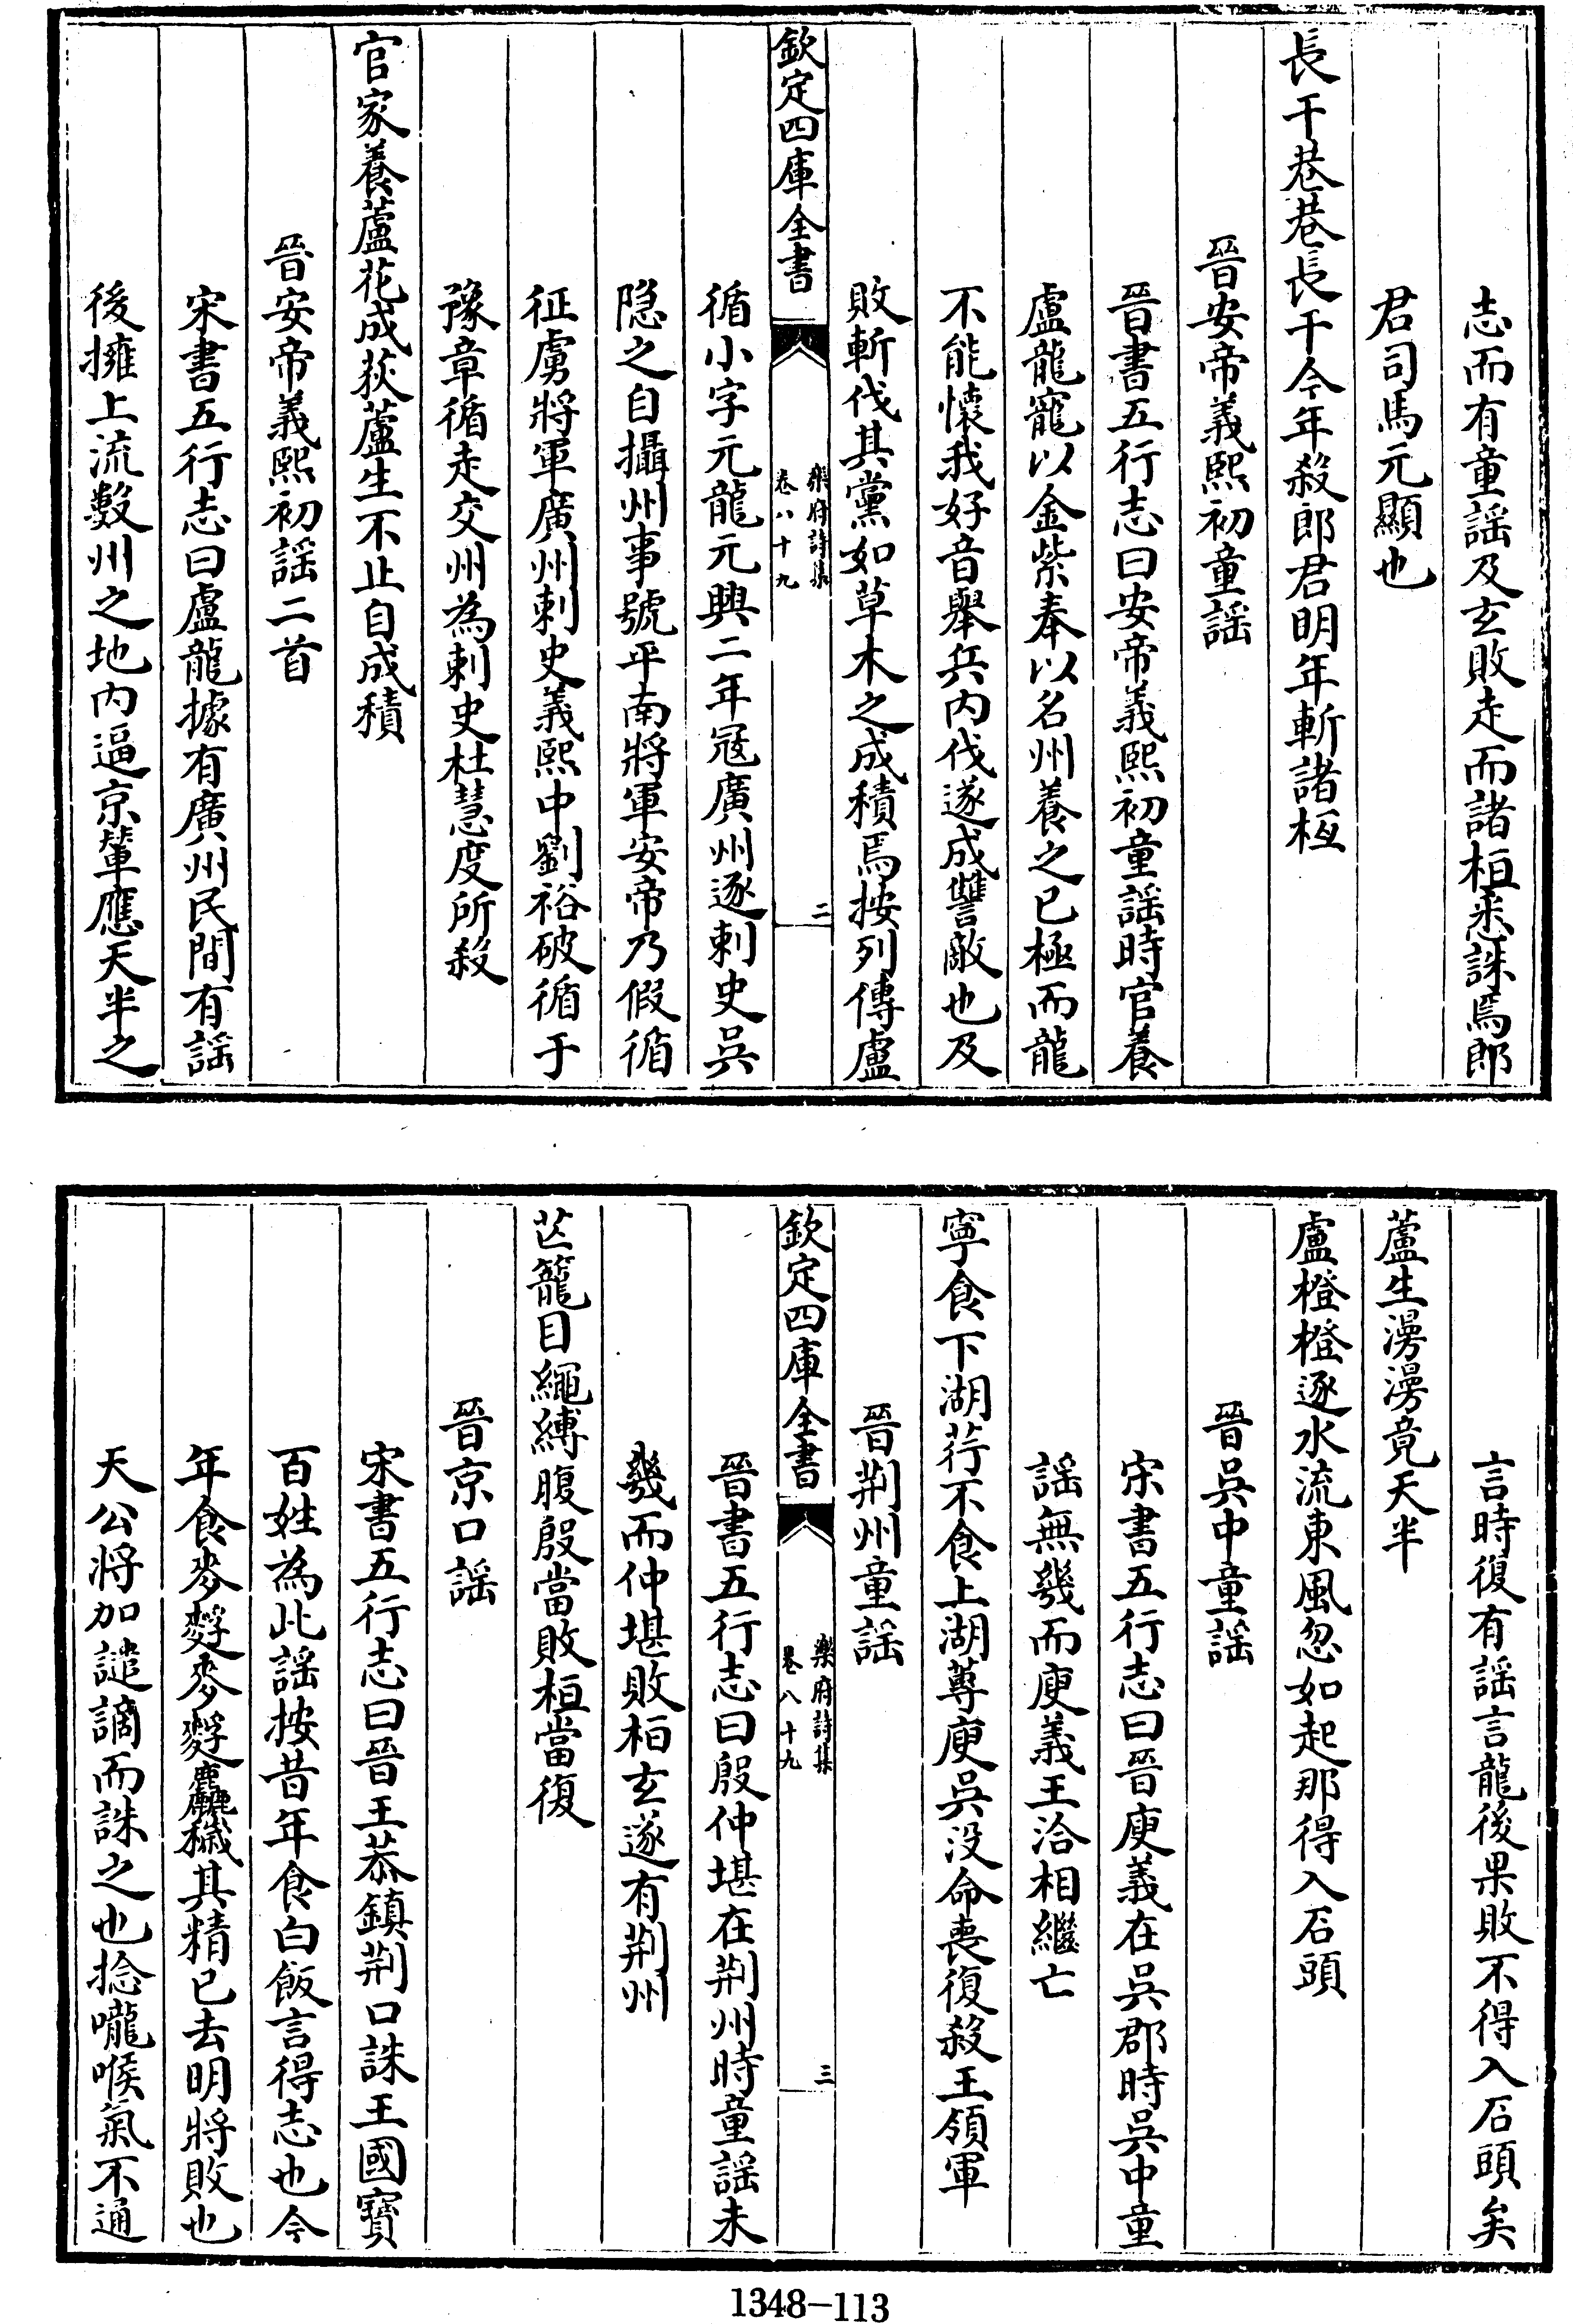 志而有童謡及玄敗走而諸桓悉誅焉郎
君司馬元顯也
長干巷巷長干今年殺郎君明年斬諸桓
晉安帝義熙初童謡
晉書五行志曰安帝義熙初童謡時官養
盧龍寵以金紫奉以名州養之已極而龍
不能懷我好音舉兵内伐遂成讐敵也及
敗斬伐其黨如草木之成積焉按列傳盧
欽定四庫全書
樂府詩集
卷八十九
二
循小字元龍元興二年冦廣州逐刺史吳
隐之自攝州事號平南將軍安帝乃假循
征虜將軍廣州刺史義熙中劉裕破循于
豫章循走交州為刺史杜慧度所殺
官家養蘆花成荻蘆生不止自成積
晉安帝義熙初謡二首
宋書五行志曰盧龍據有廣州民間有謡
後擁上流數州之地内逼京輦應天半之
言時復有謡言龍後果敗不得入石頭矣
蘆生漫漫竟天半
盧橙橙逐水流東風忽如起那得入石頭
晉吳中童謡
宋書五行志曰晉庾義在吳郡時吳中童
謡無幾而庾義王洽相繼亡
寧食下湖荇不食上湖蓴庾吳没命喪復殺王領軍
晉荆州童謡
欽定四庫全書
樂府詩集
卷八十九
三
晉書五行志曰殷仲堪在荆州時童謡未
幾而仲堪敗桓玄遂有荆州
芒籠目繩縛腹殷當敗桓當復
晉京口謡
宋書五行志曰晉王恭鎮荆口誅王國寶
百姓為此謡按昔年食白飯言得志也今
年食麥麩麥麩麤穢其精已去明將敗也
天公將加譴謫而誅之也捻嚨喉氣不通
1348-113